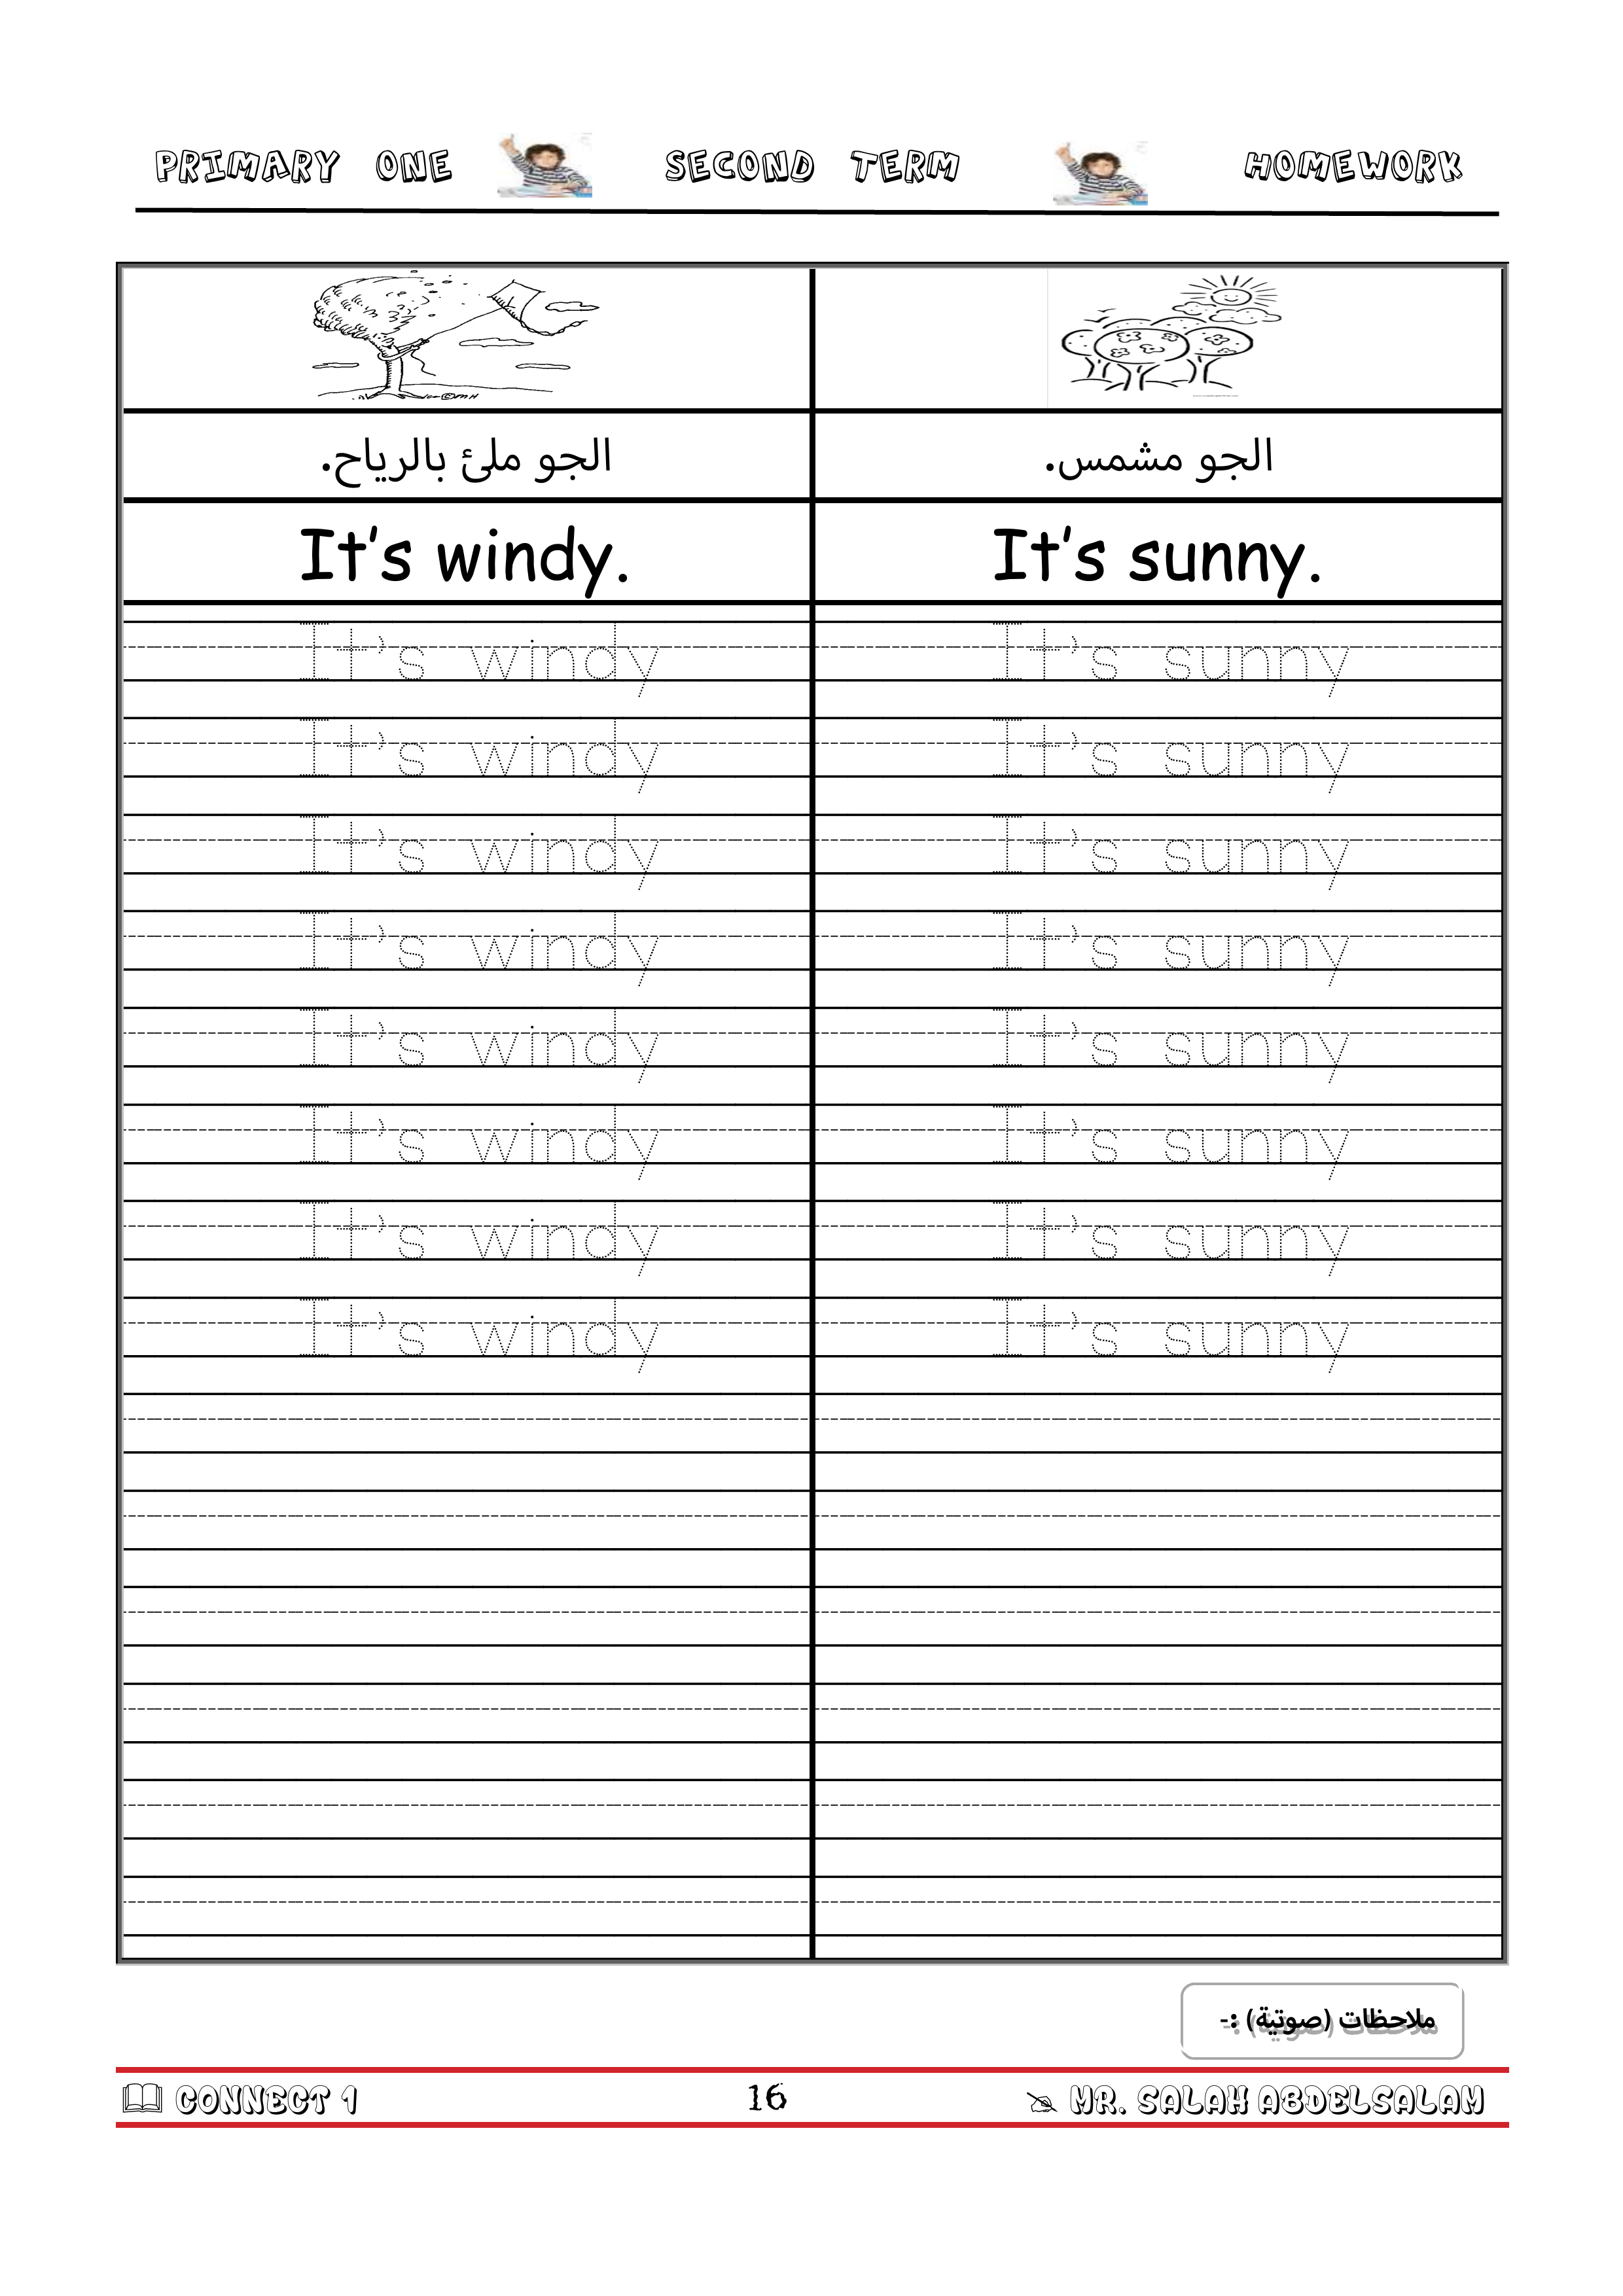 PRIMARY ONE SECOND TERM HOMEWORK
الجو ملئ بالرياح. الجو مشمس.
It's windy. It's sunny.
It's windy It's sunny
It's windy It's sunny
It's windy It's sunny
It's windy It's sunny
It's windy It's sunny
It's windy It's sunny
It's windy It's sunny
It's windy It's sunny
ملاحظات (صوتية) :-
CONNECT 1 16 MR. SALAH ABDELSALAM